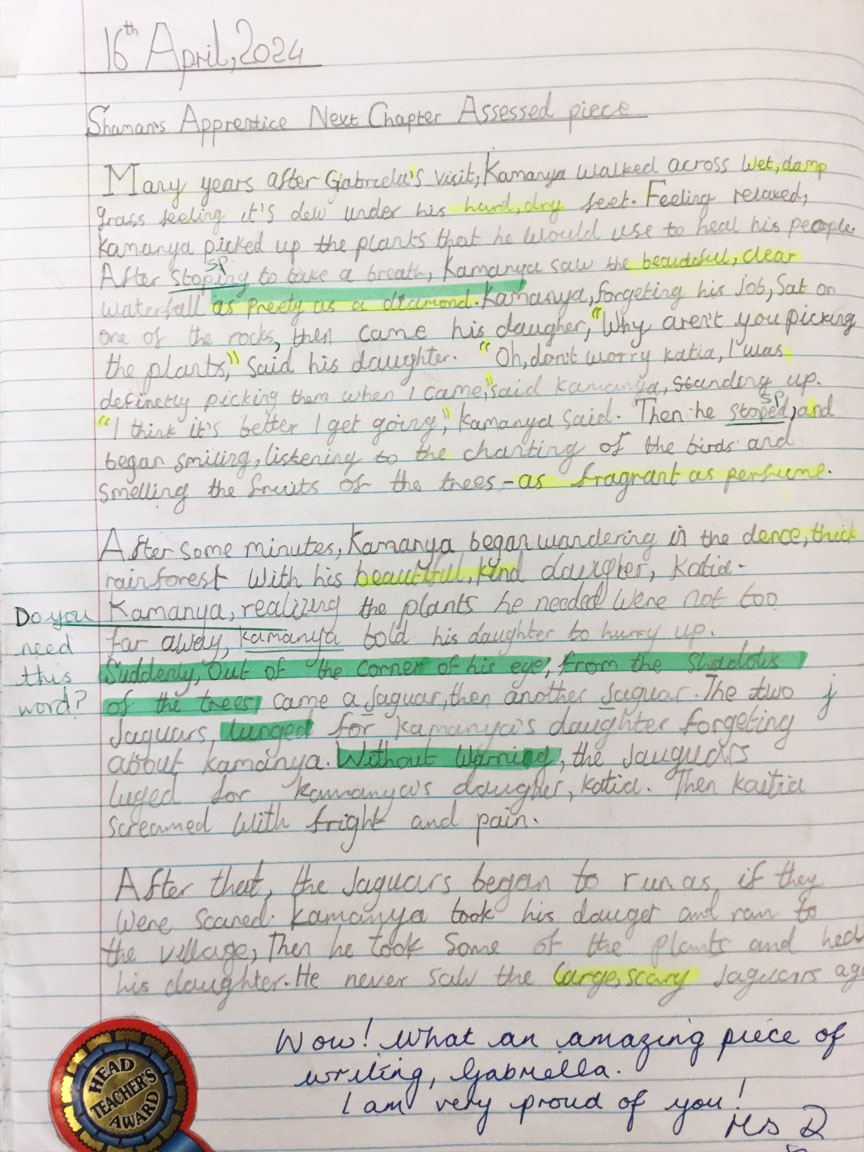 16th April, 2024
Shamans Apprentice Next Chapter Assessed piece
Many years after Gabriela's visit, Kamanya walked across wet, damp
grass feeling it's dew under his hard, dry feet. Feeling relaxed,
Kamanya picked up the plants that he would use to heal his people.
sp
After stoping to take a breath, Kamanya saw the beautiful, clear
waterfall as preety as a diamond. Kamanya, forgeting his job, Sat on
one of the rocks, then came his daugher, "Why aren't you picking
the plants," said his daughter. "Oh, don't worry Katia, I was
definetly picking them when I came," said Kamanya, standing up.
sp
"I think it's better I get going," Kamanya said. Then he stoped, and
began smiling, listening to the chanting of the birds and
smelling the fruits of the trees - as fragrant as perfume.
After some minutes, Kamanya began wandering in the dence, thick
rainforest with his beautiful, kind daughter, Katia.
Do you Kamanya, realizing the plants he needed were not too
need far away, Kamanya told his daughter to hurry up.
this Suddenly, Out of the corner of his eye, from the shadows
word? of the trees came a Jaguar, then another Jaguar. The two j
Jaguars, lunged for Kamanya's daughter forgeting
about Kamanya. Without Warning, the Jauguars
luged for Kamanya's daugher, Katia. Then Kaitia
screamed with fright and pain.
After that, the Jaguars began to run as, if they
were scared. Kamanya took his dauget and ran to
the village, Then he took some of the plants and
his daughter. He never saw the large, scary Jaguars
Wow! What an amazing piece of
writing, Gabriella.
I am very proud of you!
Ms
HEAD TEACHER'S AWARD